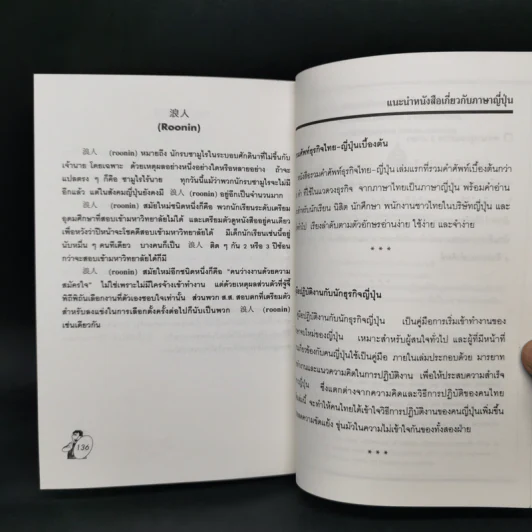 浪人
(Roonin)
浪人 (roonin) หมายถึง นักรบซามูไรในระบอบศักดินาที่ไม่ขึ้นกับ
เจ้านาย โดยเฉพาะ ด้วยเหตุผลอย่างหนึ่งอย่างใดหรือหลายอย่าง ถ้าจะ
แปลตรง ๆ ก็คือ ซามูไรไร้นาย ทุกวันนี้แม้ว่าพวกนักรบซามูไรจะไม่มี
อีกแล้ว แต่ในสังคมญี่ปุ่นยังคงมี 浪人 (roonin) อยู่อีกเป็นจำนวนมาก
浪人 (roonin) สมัยใหม่ชนิดหนึ่งก็คือ พวกนักเรียนระดับเตรียม
อุดมศึกษาที่สอบเข้ามหาวิทยาลัยไม่ได้ และเตรียมตัวดูหนังสืออยู่คนเดียว
เพื่อหวังว่าปีหน้าจะโชคดีสอบเข้ามหาวิทยาลัยได้ มีเด็กนักเรียนเช่นนี้อยู่
นับหมื่น ๆ คนทีเดียว บางคนก็เป็น 浪人 ติด ๆ กัน 2 หรือ 3 ปีซ้อน
กว่าจะสอบเข้ามหาวิทยาลัยได้ก็มี
浪人 (roonin) สมัยใหม่อีกชนิดหนึ่งก็คือ "คนว่างงานด้วยความ
สมัครใจ" ไม่ใช่เพราะไม่มีใครจ้างเข้าทำงาน แต่ด้วยเหตุผลส่วนตัวที่จู้จี้
พิถีพิถันเลือกงานที่ตัวเองชอบใจเท่านั้น ส่วนพวก ส.ส. สอบตกที่เตรียมตัว
สำหรับลงแข่งในการเลือกตั้งครั้งต่อไปก็นับเป็นพวก 浪人 (roonin)
เช่นเดียวกัน
136
แนะนำหนังสือเกี่ยวกับภาษาญี่ปุ่น
ศัพท์ธุรกิจไทย-ญี่ปุ่นเบื้องต้น
รวมคำศัพท์ธุรกิจไทย-ญี่ปุ่น เล่มแรกที่รวมคำศัพท์เบื้องต้นกว่า
คำ ที่ใช้ในแวดวงธุรกิจ จากภาษาไทยเป็นภาษาญี่ปุ่น พร้อมคำอ่าน
สำหรับนักเรียน นิสิต นักศึกษา พนักงานชาวไทยในบริษัทญี่ปุ่น และ
เรียงลำดับตามตัวอักษรอ่านง่าย ใช้ง่าย และจำง่าย
* * *
ปฏิบัติงานกับนักธุรกิจญี่ปุ่น
ปฏิบัติงานกับนักธุรกิจญี่ปุ่น เป็นคู่มือการเริ่มเข้าทำงานของ
ใหม่ของญี่ปุ่น เหมาะสำหรับผู้สนใจทั่วไป และผู้ที่มีหน้าที่
เกี่ยวข้องกับคนญี่ปุ่นใช้เป็นคู่มือ ภายในเล่มประกอบด้วย มารยาท
ทำงานและแนวความคิดในการปฏิบัติงาน เพื่อให้ประสบความสำเร็จ
ญี่ปุ่น ซึ่งแตกต่างจากความคิดและวิธีการปฏิบัติของคนไทย
จะทำให้คนไทยได้เข้าใจวิธีการปฏิบัติงานของคนญี่ปุ่นเพิ่มขึ้น
ความขัดแย้ง ขุ่นมัวในความไม่เข้าใจกันของทั้งสองฝ่าย
* * *